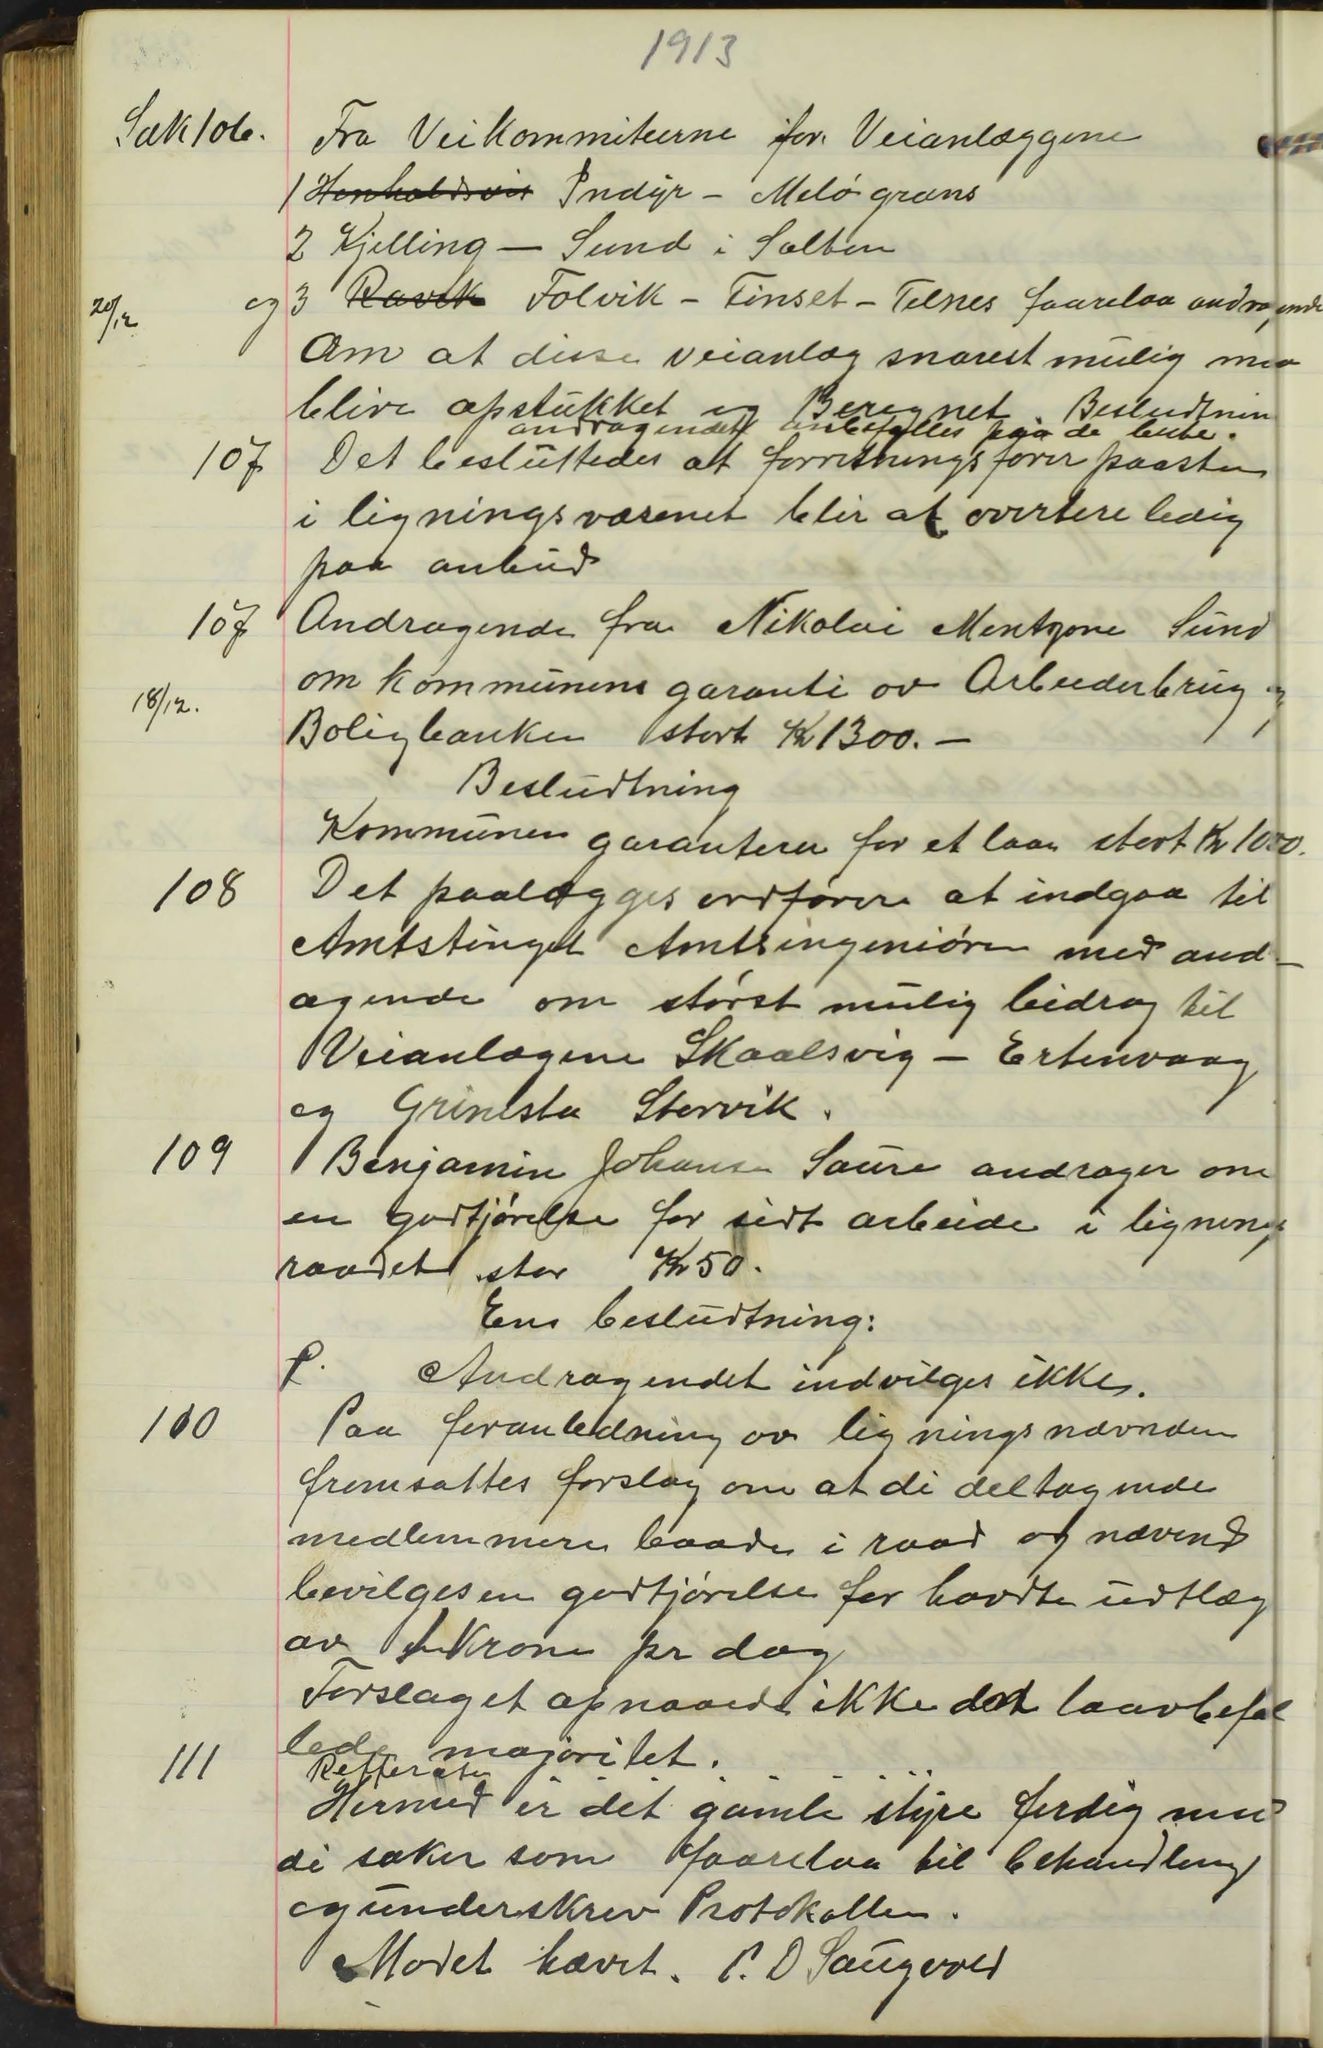 1913
Sak 106. Fra Veikommiteerne for Veianlæggene
1 Henholdsvis Indyr - Melö græns
2 Kjelling - Sund i Salten
20/12 og 3 Ravik Folvik - Finset - Telnes faarelaa andragende
Om at disse veianlæg snarest mulig maa
blive opstukket og Beregnet. Besludtnin
andragendet anbefalles paa de beste.
107 Det besluttedes at forretningsförer paasten
i ligningsvæsenet blir at overtere ledig
paa anbud
107 Andragende fra Nikolai Mentzone Sund
18/12. om kommunens garanti ov Arbeiderbrug og
Boligbanken stort Kr 1300.-
Besludtning
Kommunen garanterer for et laan stort Kr 1000.
108 Det paalægges ordförere at indgaa til
Amtstinget Amtsingeniören med and-
agende om störst mulig bidrag til
Veianlægene Skaalsvig - Ertenvaag
og Grimsta Storvik.
109 Benjamin Johansen Saura andrager om
en godtjörelse for sidt arbeide i lignings
raadet stor Kr 50.
Ens besludtning:
Andragendet indvilges ikke.
110 Paa foranledning ov ligningsnævnden
fremsattes forslag om at di deltagende
medlemmere baade i raad og nævnd
bevilges en godtjörelse for havdte udtlæg
av 1 Krone pr dag
Forslaget opnaaede ikke det laavbefal
lede majoritet.
111 Refferater
Hermed er det gamle styre ferdig med
di saker som faarelaa til behandling
og underskrev Protokollen.
Mödet hævet. P. D Saugvold